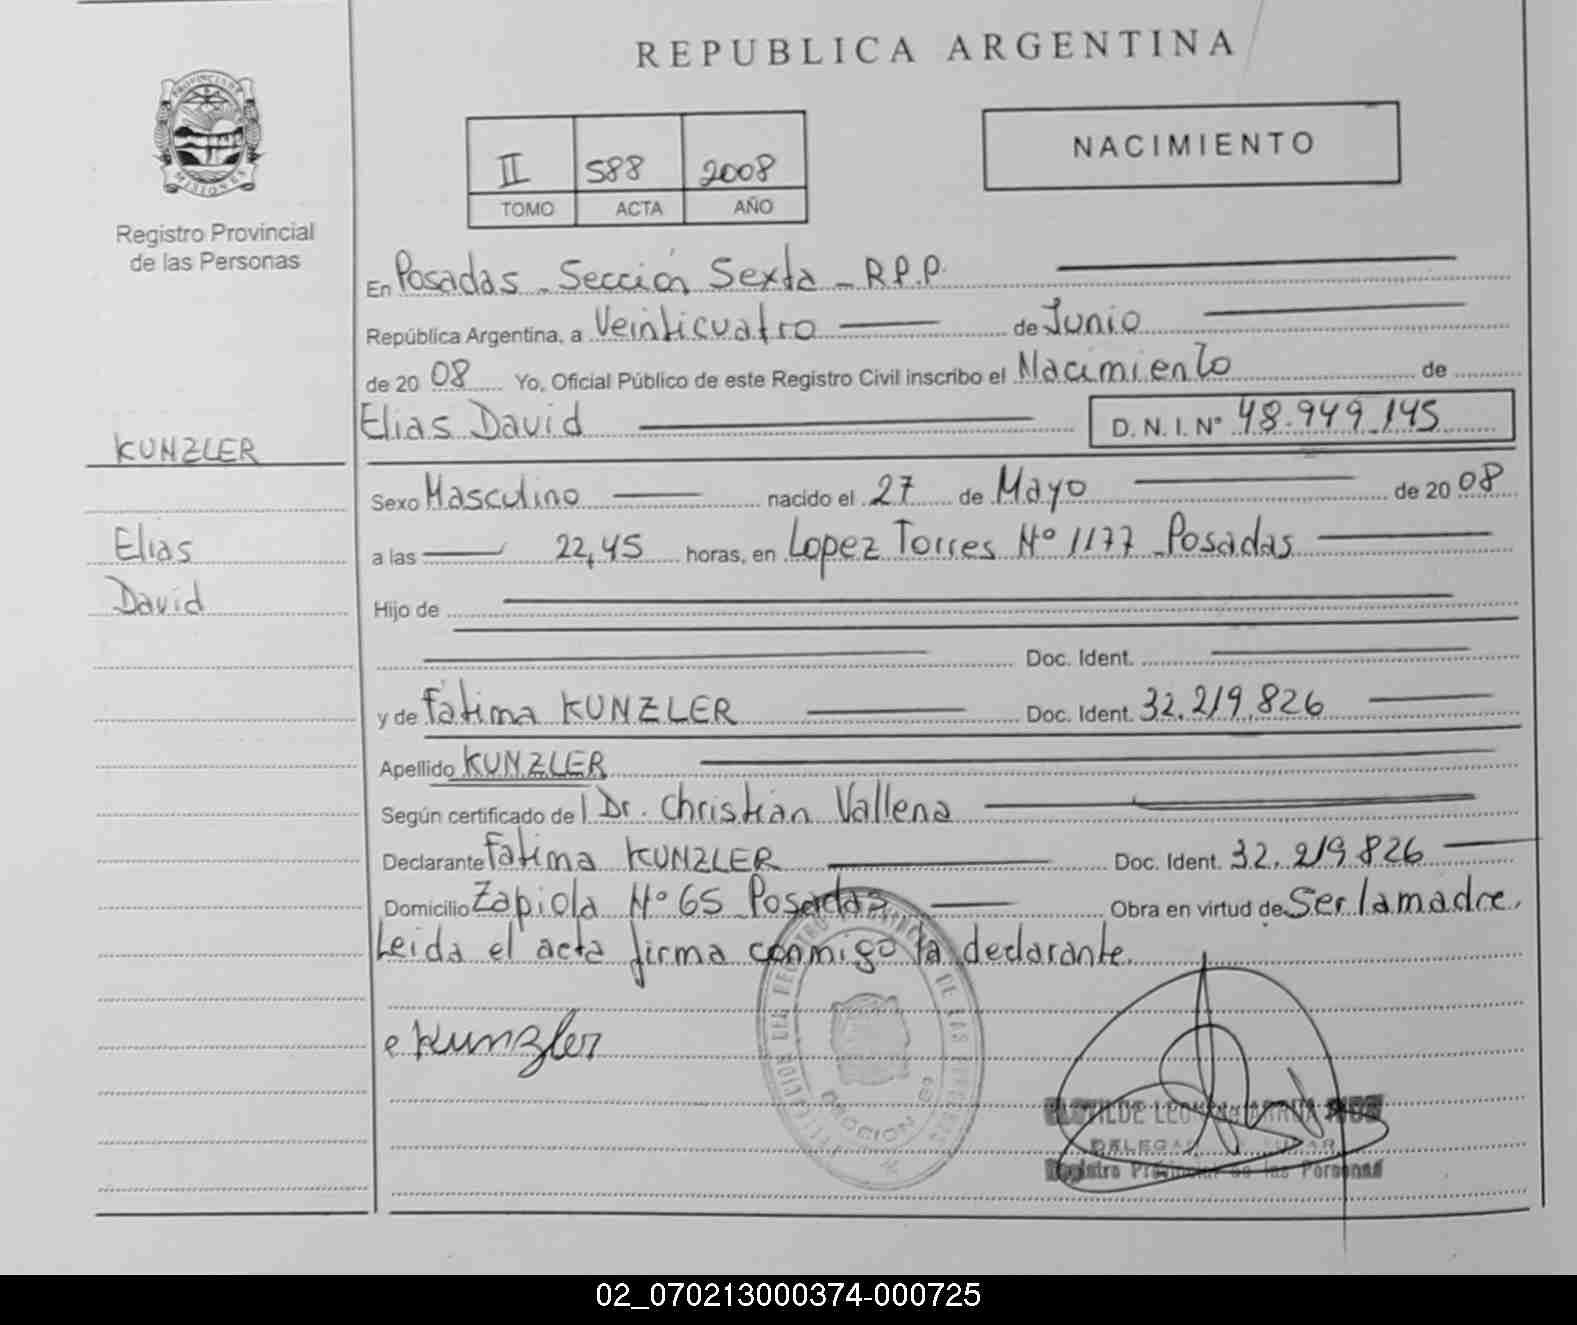 REPUBLICA ARGENTINA
PROVINCIA DE
MISIONES
Registro Provincial
de las Personas
II 588 2008
TOMO ACTA AÑO
NACIMIENTO
En Posadas - Sección Sexta - R.P.P.
República Argentina, a Veinticuatro de Junio
de 20 08 Yo, Oficial Público de este Registro Civil inscribo el Nacimiento de
Elias David D.N.I.Nº 48.949.145
KUNZLER
Elias
David
Sexo Masculino nacido el 27 de Mayo de 20 08
a las 22,45 horas, en Lopez Torres Nº 1177 Posadas
Hijo de
Doc. Ident.
y de Fátima KUNZLER Doc. Ident. 32.219.826
Apellido KUNZLER
Según certificado del Dr. Christian Vallena
Declarante Fatima KUNZLER Doc. Ident. 32.219.826
Domicilio Zapiola Nº 65 Posadas Obra en virtud de Ser la madre.
Leida el acta firma conmigo la declarante.
Kunzler
Registro Provincial de las Personas
02_070213000374-000725